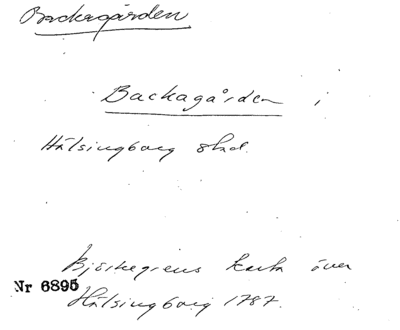 Backagården
Backagården i
Hälsingborg stad.
Björkegrens karta över
Nr 6895
Hälsingborg 1787.